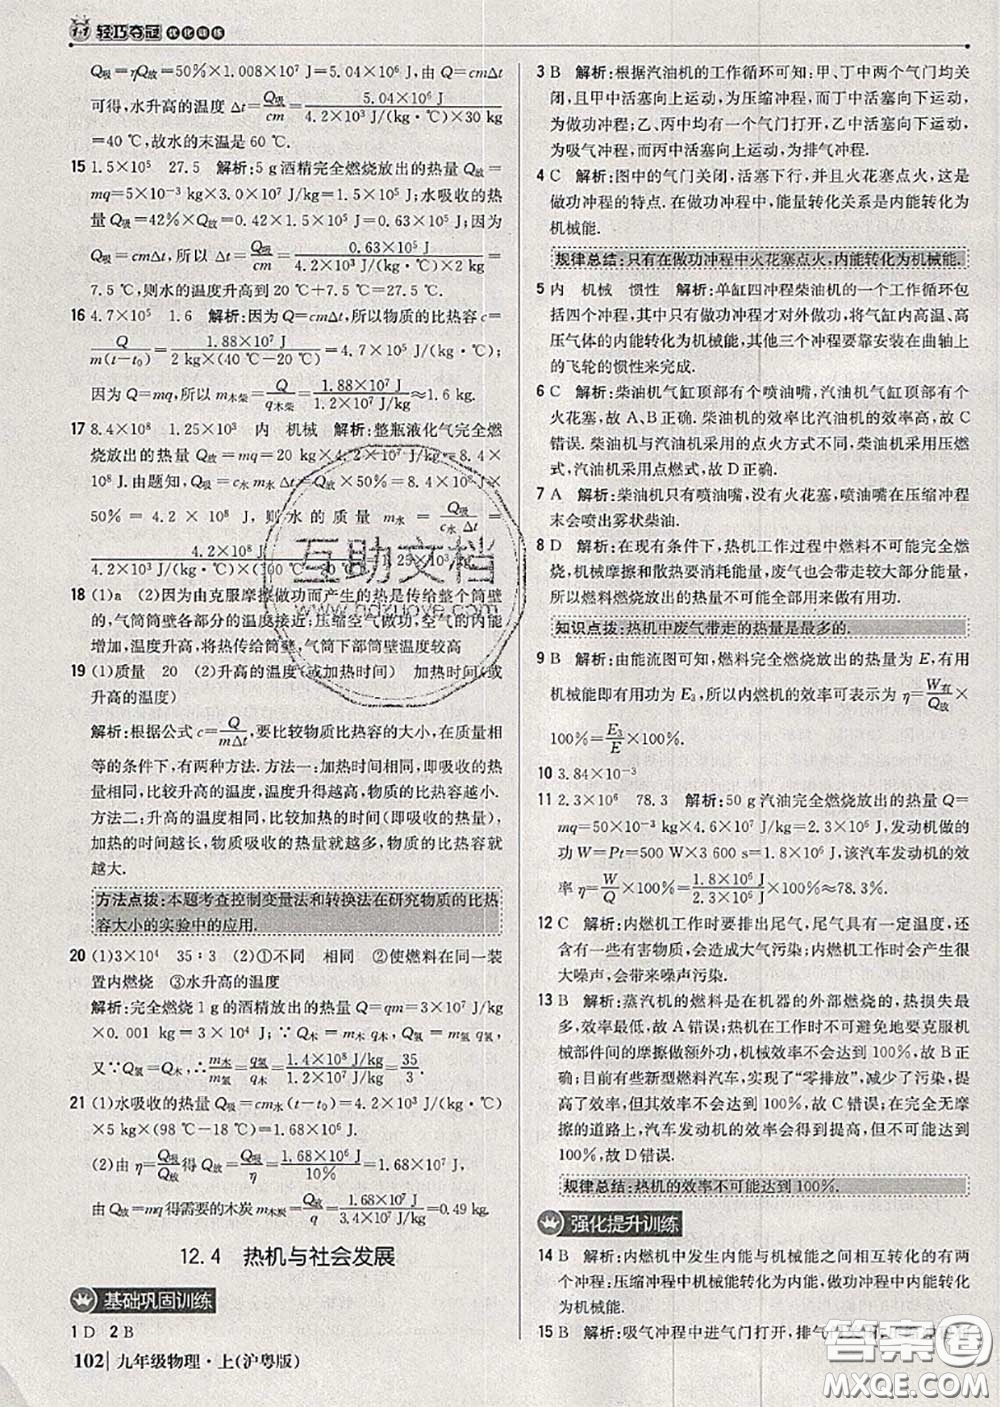 1+1 轻巧夺冠 优化训练
Q吸=ηQ放=50%×1.008×10⁷ J=5.04×10⁶ J,由 Q=cmΔt
可得,水升高的温度 Δt=Q吸/cm=5.04×10⁶ J/4.2×10³ J/(kg·℃)×30 kg
=40 ℃,故水的末温是 60 ℃.
15 1.5×10⁵ 27.5 解析:5 g酒精完全燃烧放出的热量 Q放=
mq=5×10⁻³ kg×3.0×10⁷ J/kg=1.5×10⁵ J;水吸收的热
量 Q吸=42%×Q放=0.42×1.5×10⁵ J=0.63×10⁵ J;因为
Q吸=cmΔt,所以 Δt=Q吸/cm=0.63×10⁵ J/4.2×10³ J/(kg·℃)×2 kg=
7.5 ℃,则水的温度升高到 20 ℃+7.5 ℃=27.5 ℃.
16 4.7×10⁵ 1.6 解析:因为 Q=cmΔt,所以物质的比热容 c=
Q/m(t-t₀)=1.88×10⁷ J/2 kg×(40 ℃-20 ℃)=4.7×10⁵ J/(kg·℃);
因为 Q=mq,所以 m木柴=Q/q木柴=1.88×10⁷ J/1.2×10⁷ J/kg≈1.6 kg.
17 8.4×10⁸ 1.25×10³ 内 机械 解析:整瓶液化气完全燃
烧放出的热量 Q放=mq=20 kg×4.2×10⁷ J/kg=8.4×
10⁸ J.由题知,Q吸=c水m水Δt=Q放×50%=8.4×10⁸ J×
50%=4.2×10⁸ J,则水的质量 m水=Q吸/c水Δt=
4.2×10⁸ J/4.2×10³ J/(kg·℃) 1.25×10³ kg.
18 (1)a (2)因为由克服摩擦做功而产生的热是传给整个筒壁
的,气筒筒壁各部分的温度接近;压缩空气做功,空气的温度
升高,并将热传给筒壁,气筒下部筒壁温度较高
19 (1)质量 20 (2)升高的温度(或加热时间) 加热时间(或
升高的温度)
解析:根据公式 c=Q/mΔt,要比较物质比热容的大小,在质量相
等的条件下,有两种方法.方法一:加热时间相同,即吸收的热
量相同,比较升高的温度,温度升得越高,物质的比热容越小.
方法二:升高的温度相同,比较加热的时间(即吸收的热量),
加热的时间越长,物质吸收的热量就越多,物质的比热容就
越大.
方法点拨:本题考查控制变量法和转换法在研究物质的比热
容大小的实验中的应用.
20 (1)3×10⁴ 35∶3 (2)①不同 相同 ②使燃料在同一装
置内燃烧 ③水升高的温度
解析:完全燃烧 1 g的酒精放出的热量 Q=qm=3×10⁷ J/kg
×0.001 kg=3×10⁴ J;∵Q木=m木q木,Q氢=m氢q氢,
又∵Q氢=Q木,∴m木/m氢=q氢/q木=1.4×10⁸ J/kg/1.2×10⁷ J/kg=35/3.
21 (1)水吸收的热量 Q吸=cm水(t-t₀)=4.2×10³ J/(kg·℃)
×5 kg×(98 ℃-18 ℃)=1.68×10⁶ J.
(2)由 η=Q吸/Q放得 Q放=Q吸/η=1.68×10⁶ J/10%=1.68×10⁷ J,
由 Q放=mq得需要的木炭 m木炭=Q放/q=1.68×10⁷ J/3.4×10⁷ J/kg≈0.49 kg.
12.4 热机与社会发展
基础巩固训练
1 D 2 B
102 九年级物理·上(沪粤版)
3 B 解析:根据汽油机的工作循环可知:甲、丁中两个气门均关
闭,且甲中活塞向上运动,为压缩冲程,而丁中活塞向下运动,
为做功冲程;乙、丙中均有一个气门打开,乙中活塞向下运动,
为吸气冲程,而丙中活塞向上运动,为排气冲程.
4 C 解析:图中的气门关闭,活塞下行,并且火花塞点火,这是
做功冲程的特点.在做功冲程中,能量转化关系是内能转化为
机械能.
规律总结:只有在做功冲程中火花塞点火,内能转化为机械能.
5 内 机械 惯性 解析:单缸四冲程柴油机的一个工作循环包
括四个冲程,其中只有做功冲程才对外做功,将气缸内高温、高
压气体的内能转化为机械能,其他三个冲程要靠安装在曲轴上
的飞轮的惯性来完成.
6 C 解析:柴油机气缸顶部有个喷油嘴,汽油机气缸顶部有个
火花塞,故 A、B 正确.柴油机的效率比汽油机的效率高,故 C
错误.柴油机与汽油机采用的点火方式不同,柴油机采用压燃
式,汽油机采用点燃式,故 D 正确.
7 A 解析:柴油机只有喷油嘴,没有火花塞,喷油嘴在压缩冲程
末会喷出雾状柴油.
8 D 解析:在现有条件下,热机工作过程中燃料不可能完全燃
烧,机械摩擦和散热要消耗能量,废气也会带走较大部分能量,
所以燃料燃烧放出的热量不可能全部用来做有用功.
知识点拨:热机中废气带走的热量是最多的.
9 B 解析:由能流图可知,燃料完全燃烧放出的热量为 E,有用
机械能即有用功为 E₃,所以内燃机的效率可表示为 η=W有/Q放×
100%=E₃/E×100%.
10 3.84×10⁻³
11 2.3×10⁶ 78.3 解析:50 g汽油完全燃烧放出的热量 Q=
mq=50×10⁻³ kg×4.6×10⁷ J/kg=2.3×10⁶ J,发动机做的
功 W=Pt=500 W×3 600 s=1.8×10⁶ J,该汽车发动机的效
率 η=W/Q=1.8×10⁶ J/2.3×10⁶ J×100%≈78.3%.
12 C 解析:内燃机工作时要排出尾气,尾气具有一定温度,还
有一些有害物质,会造成大气污染;内燃机工作时会产生很
大噪声,会带来噪声污染.
13 B 解析:蒸汽机的燃料是在机器的外部燃烧的,热损失最多,
效率最低,故 A 错误;热机在工作时不可避免地要克服机
械部件间的摩擦做额外功,机械效率不会达到 100%,故 B 正确;
目前有些新型燃料汽车,实现了“零排放”,减少了污染,提
高了效率,但其效率不会达到 100%,故 C 错误;在完全无摩
擦的道路上,汽车发动机的效率会得到提高,但不可能达到
100%,故 D 错误.
规律总结:热机的效率不可能达到 100%.
强化提升训练
14 B 解析:内燃机中发生内能与机械能之间相互转化的有两
个冲程:压缩冲程中机械能转化为内能,做功冲程中内能转化
为机械能.
15 B 解析:吸气冲程中进气门打开,排气
互助文档
www.hdzuoye.com
答案圈
MXQE.COM